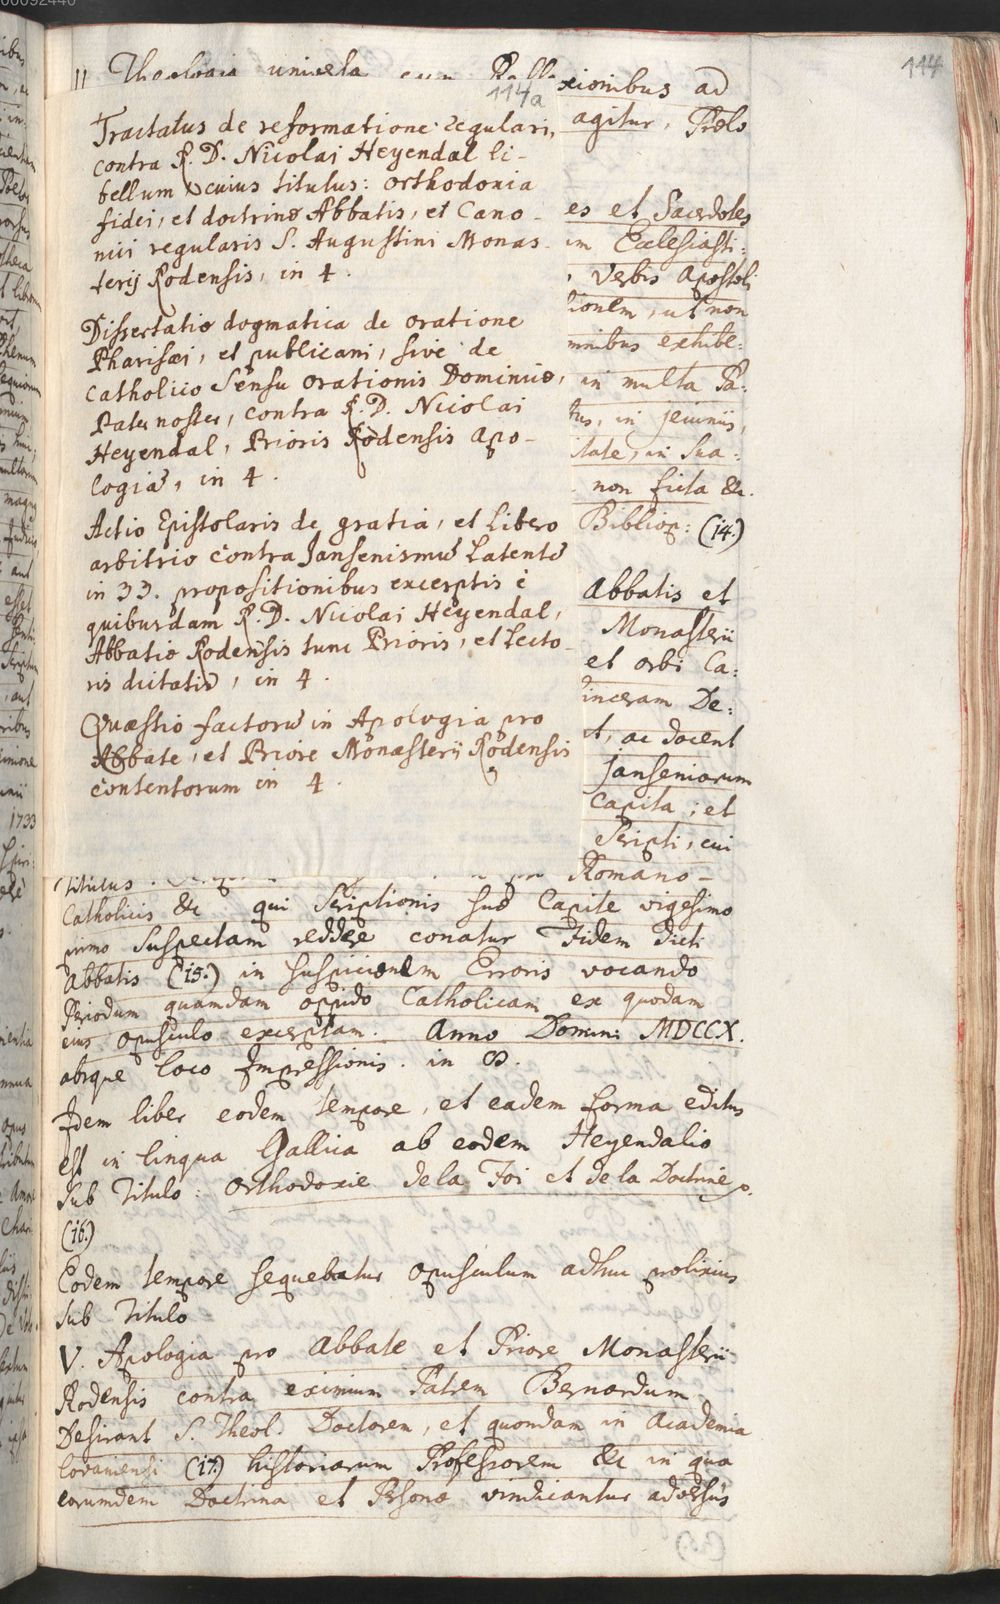 114
II Theologia universa cum Reflexionibus ad
agitur, Prolo
es et Sacerdotes
in Ecclesiasti:
, Verbis Apostoli
tionem, ut non
mnibus exhibe:
in multa Pa:
tus, in jejuniis,
itate, in Sua:
non ficta &c.
Bibliop: (14.)
Abbatis et
Monasterii
et orbi Ca:
sinceram De:
t, ac docent
Janseniorum
Capita ; et
Scripti, cui
114a
Tractatus de reformatione regulari,
contra R. D. Nicolai Heyendal li-
bellum cuius titulus: Orthodoxia
fidei, et doctrinæ Abbatis, et Cano-
nici regularis S. Augustini Monas-
terij Rodensis, in 4.
Dissertatio dogmatica de oratione
Pharisæi, et publicani, sive de
Catholico Sensu orationis Dominicæ,
Pater noster, contra R. D. Nicolai
Heyendal, Prioris Rodensis Apo-
logiã, in 4.
Actio Epistolaris de gratia, et libero
arbitrio contra Jansenismũ Latentẽ
in 33. propositionibus excerptis è
quibusdam R. D. Nicolai Heyendal,
Abbatis Rodensis tunc Prioris, et Lecto-
ris dictatis, in 4.
Quæstio factorũ in Apologia pro
Abbate, et Priore Monasterii Rodensis
contentorum in 4.
titulus. Romano-
Catholicis &c qui Scriptionis suæ Capite vigesimo
primo suspectam reddere conatur Fidem dicti
Abbatis (15.) in suspicionem Erroris vocando
Periodum quamdam oppido Catholicam ex quodam
eius opusculo excerptam. Anno Domini MDCCX.
absque loco Impressionis. in 8.
Idem liber eodem tempore, et eadem forma editus
est in lingua Gallica ab eodem Heyendalio
sub Titulo: Orthodoxie de la Foi et de la Doctrine
(16.)
Eodem tempore sequebatur opusculum adhuc prolixius
sub Titulo
V. Apologia pro Abbate et Priore Monasterii
Rodensis contra eximium Patrem Bernardum
Desirant S. Theol. Doctorem, et quondam in Academia
Lovaniensi (17.) historiarum Professorem &c in qua
eorumdem Doctrina et Personæ vindicantur adversus